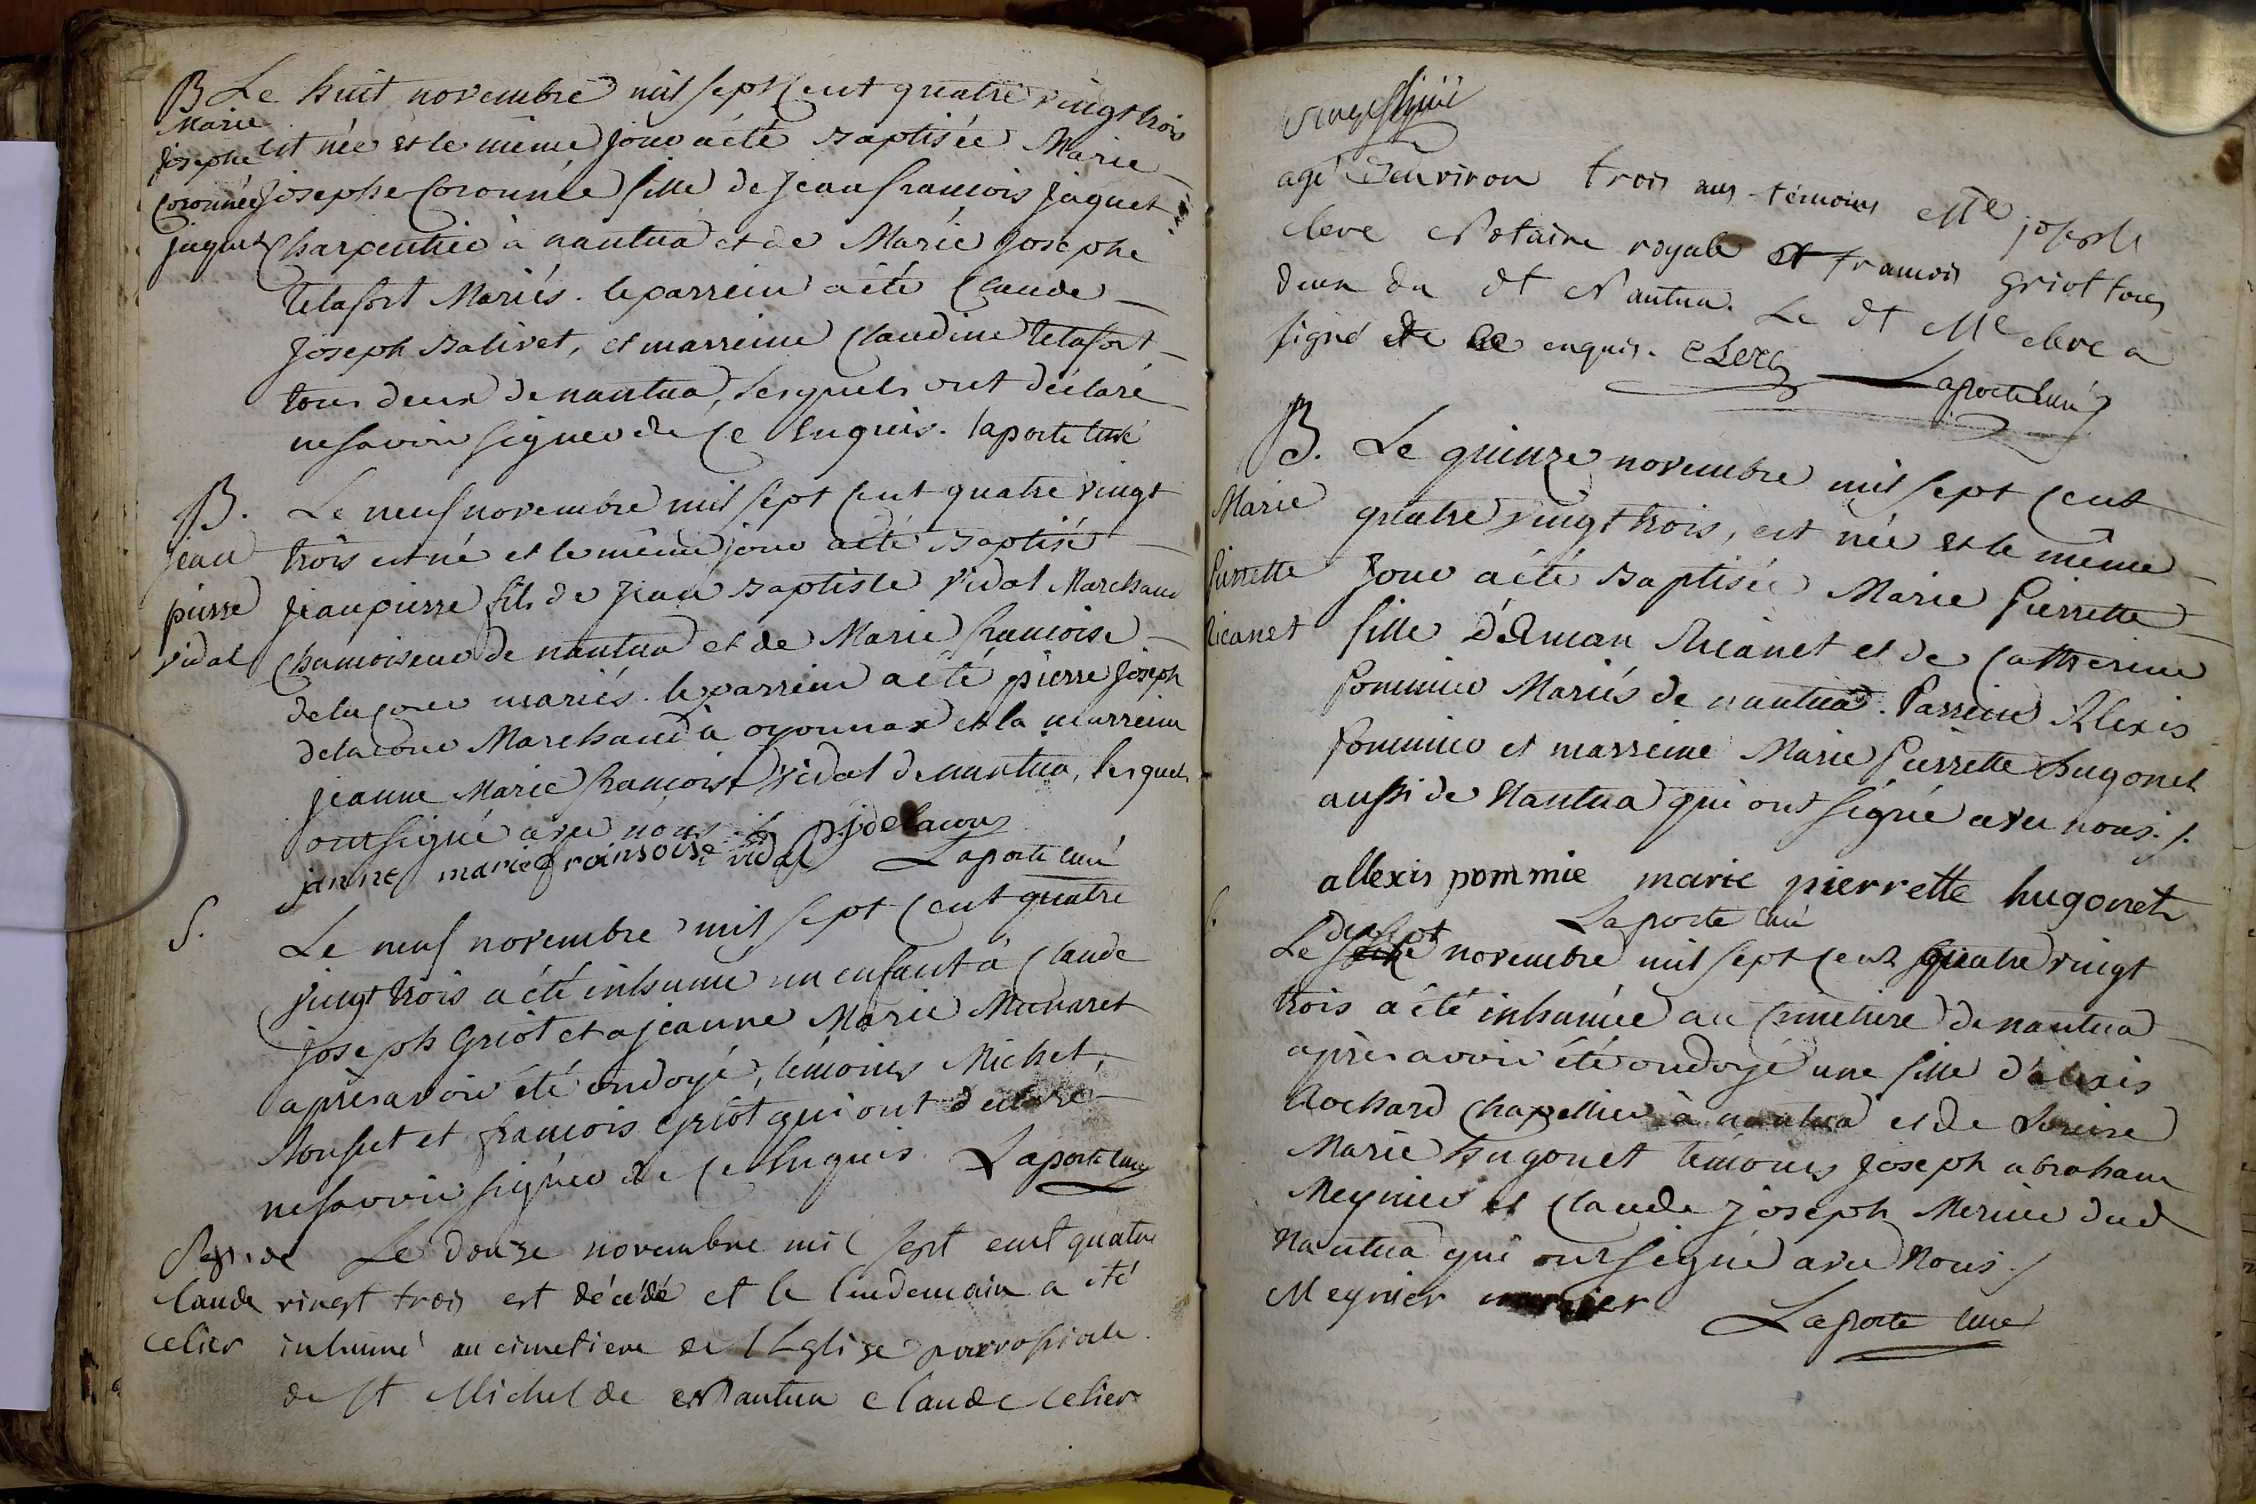 B Le huit novembre mil sept cent quatre vingt trois
Marie
Josephe est née et le même jour a été Baptisée Marie
Coronnée Josephe Coronnée fille de Jean francois Jaquet
jaquet Charpentier à nantua et de Marie Josephe
telafort Mariés. le parrein a été Claude
Joseph Balivet, et marreine Claudine telafort
tous deux de nantua, lesquels ont déclaré
ne savoir signer de ce Enquis. laporte curé
B. Le neuf novembre mil sept cent quatre vingt
jean trois est né et le même jour a été Baptisé
pierre jean pierre fils de jean Baptiste vidal Marchand
vidal Chamoiseur de nantua et de Marie francoise
delacour mariés. le parrein a été pierre Joseph
delacour Marchand à oyonnax et la marreine
jeanne Marie francoise vidal de nantua, lesquels
ont signé avec nous. pjdelacour
janne marie fransoise vidal Laporte curé
S. Le neuf novembre mil sept cent quatre
vingt trois a été inhumé un enfant à Claude
joseph Griot et a jeanne Marie Munaret
après avoir été ondoyé, témoins Michel
Rousset et francois Griot qui ont declaré
ne savoir signer de ce Enquis. Laporte curé
Le douze novembre mil sept cent quatre
Claude vingt trois est décédé et le lendemain a été
celier inhumé au cimetiere de l'Eglise parrossiale
de St Michel de Nantua Claude Celier
agé d'environ trois ans témoins Me joseph
clerc Notaire royale et francois Griot tous
deux du dt Nantua. Le dt Me clerc a
signé de ce enquis. Clerc Laporte curé
B. Le quinze novembre mil sept cent
Marie quatre vingt trois, est née et le même
Pierrette jour a été Baptisée Marie Pierrette
Ricanet fille d'Erman Ricanet et de Catherine
Pommier Mariés de nantua. Parrein Alexis
Pommier et marreine Marie Pierrette hugonet
aussi de Nantua qui ont signé avec nous.
allexis pommie marie pierrette hugonet
Laporte curé
dix sept
S. Le novembre mil sept cent quatre vingt
trois a été inhumée au Cimetiere de nantua
après avoir été ondoyé une fille d'alexis
Rochard Chapellier à nantua et de
Marie hugonet témoins Joseph abraham
Meynier et Claude joseph Mercier dud
Nantua qui ont signé avec Nous.
Meynier mercier Laporte curé